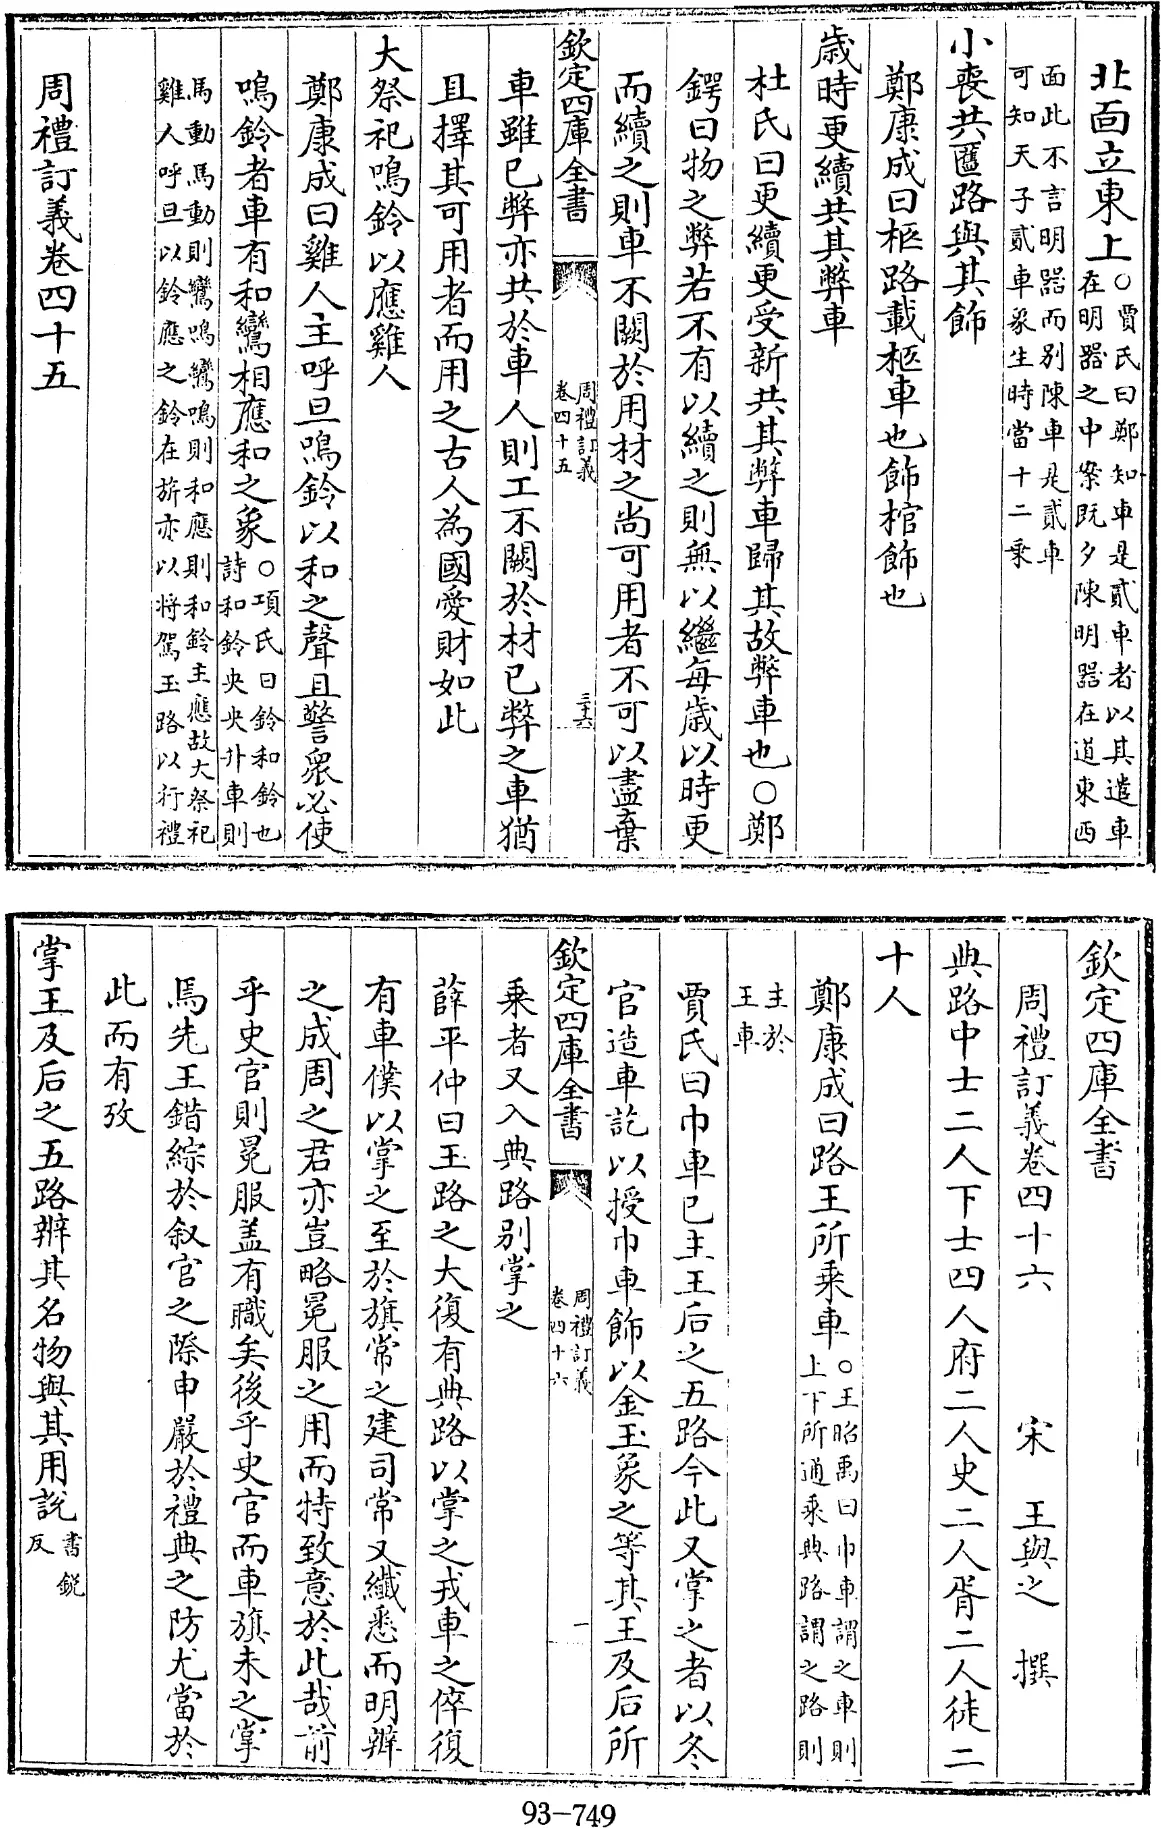 北面立東上○賈氏曰鄭知車是貳車者以其遣車
在明器之中案既夕陳明器在道東西
面此不言明器而别陳車是貳車
可知天子貳車象生時當十二乘
小喪共匶路與其飾
鄭康成曰柩路載柩車也飾棺飾也
歲時更續共其弊車
杜氏曰更續更受新共其弊車歸其故弊車也○鄭
鍔曰物之弊若不有以續之則無以繼每歲以時更
而續之則車不闕於用材之尚可用者不可以盡棄
欽定四庫全書
周禮訂義
卷四十五
三十六
車雖已弊亦共於車人則工不闕於材已弊之車猶
且擇其可用者而用之古人為國愛財如此
大祭祀鳴鈴以應雞人
鄭康成曰雞人主呼旦鳴鈴以和之聲且警衆必使
鳴鈴者車有和鸞相應和之象○項氏曰鈴和鈴也
詩和鈴央央升車則
馬動馬動則鸞鳴鸞鳴則和應則和鈴主應故大祭祀
雞人呼旦以鈴應之鈴在旂亦以将駕玉路以行禮
周禮訂義卷四十五
欽定四庫全書
周禮訂義卷四十六 宋 王與之 撰
典路中士二人下士四人府二人史二人胥二人徒二
十人
鄭康成曰路王所乘車○王昭禹曰巾車謂之車則
上下所通乘典路謂之路則
主於
王車
賈氏曰巾車已主王后之五路今此又掌之者以冬
官造車訖以授巾車飾以金玉象之等其王及后所
欽定四庫全書
周禮訂義
卷四十六
一
乘者又入典路别掌之
薛平仲曰玉路之大復有典路以掌之戎車之倅復
有車僕以掌之至於旗常之建司常又纖悉而明辨
之成周之君亦豈略冕服之用而特致意於此哉前
乎史官則冕服盖有職矣後乎史官而車旗未之掌
焉先王錯綜於叙官之際申嚴於禮典之防尤當於
此而有攷
掌王及后之五路辨其名物與其用說書鋭
反
93-749